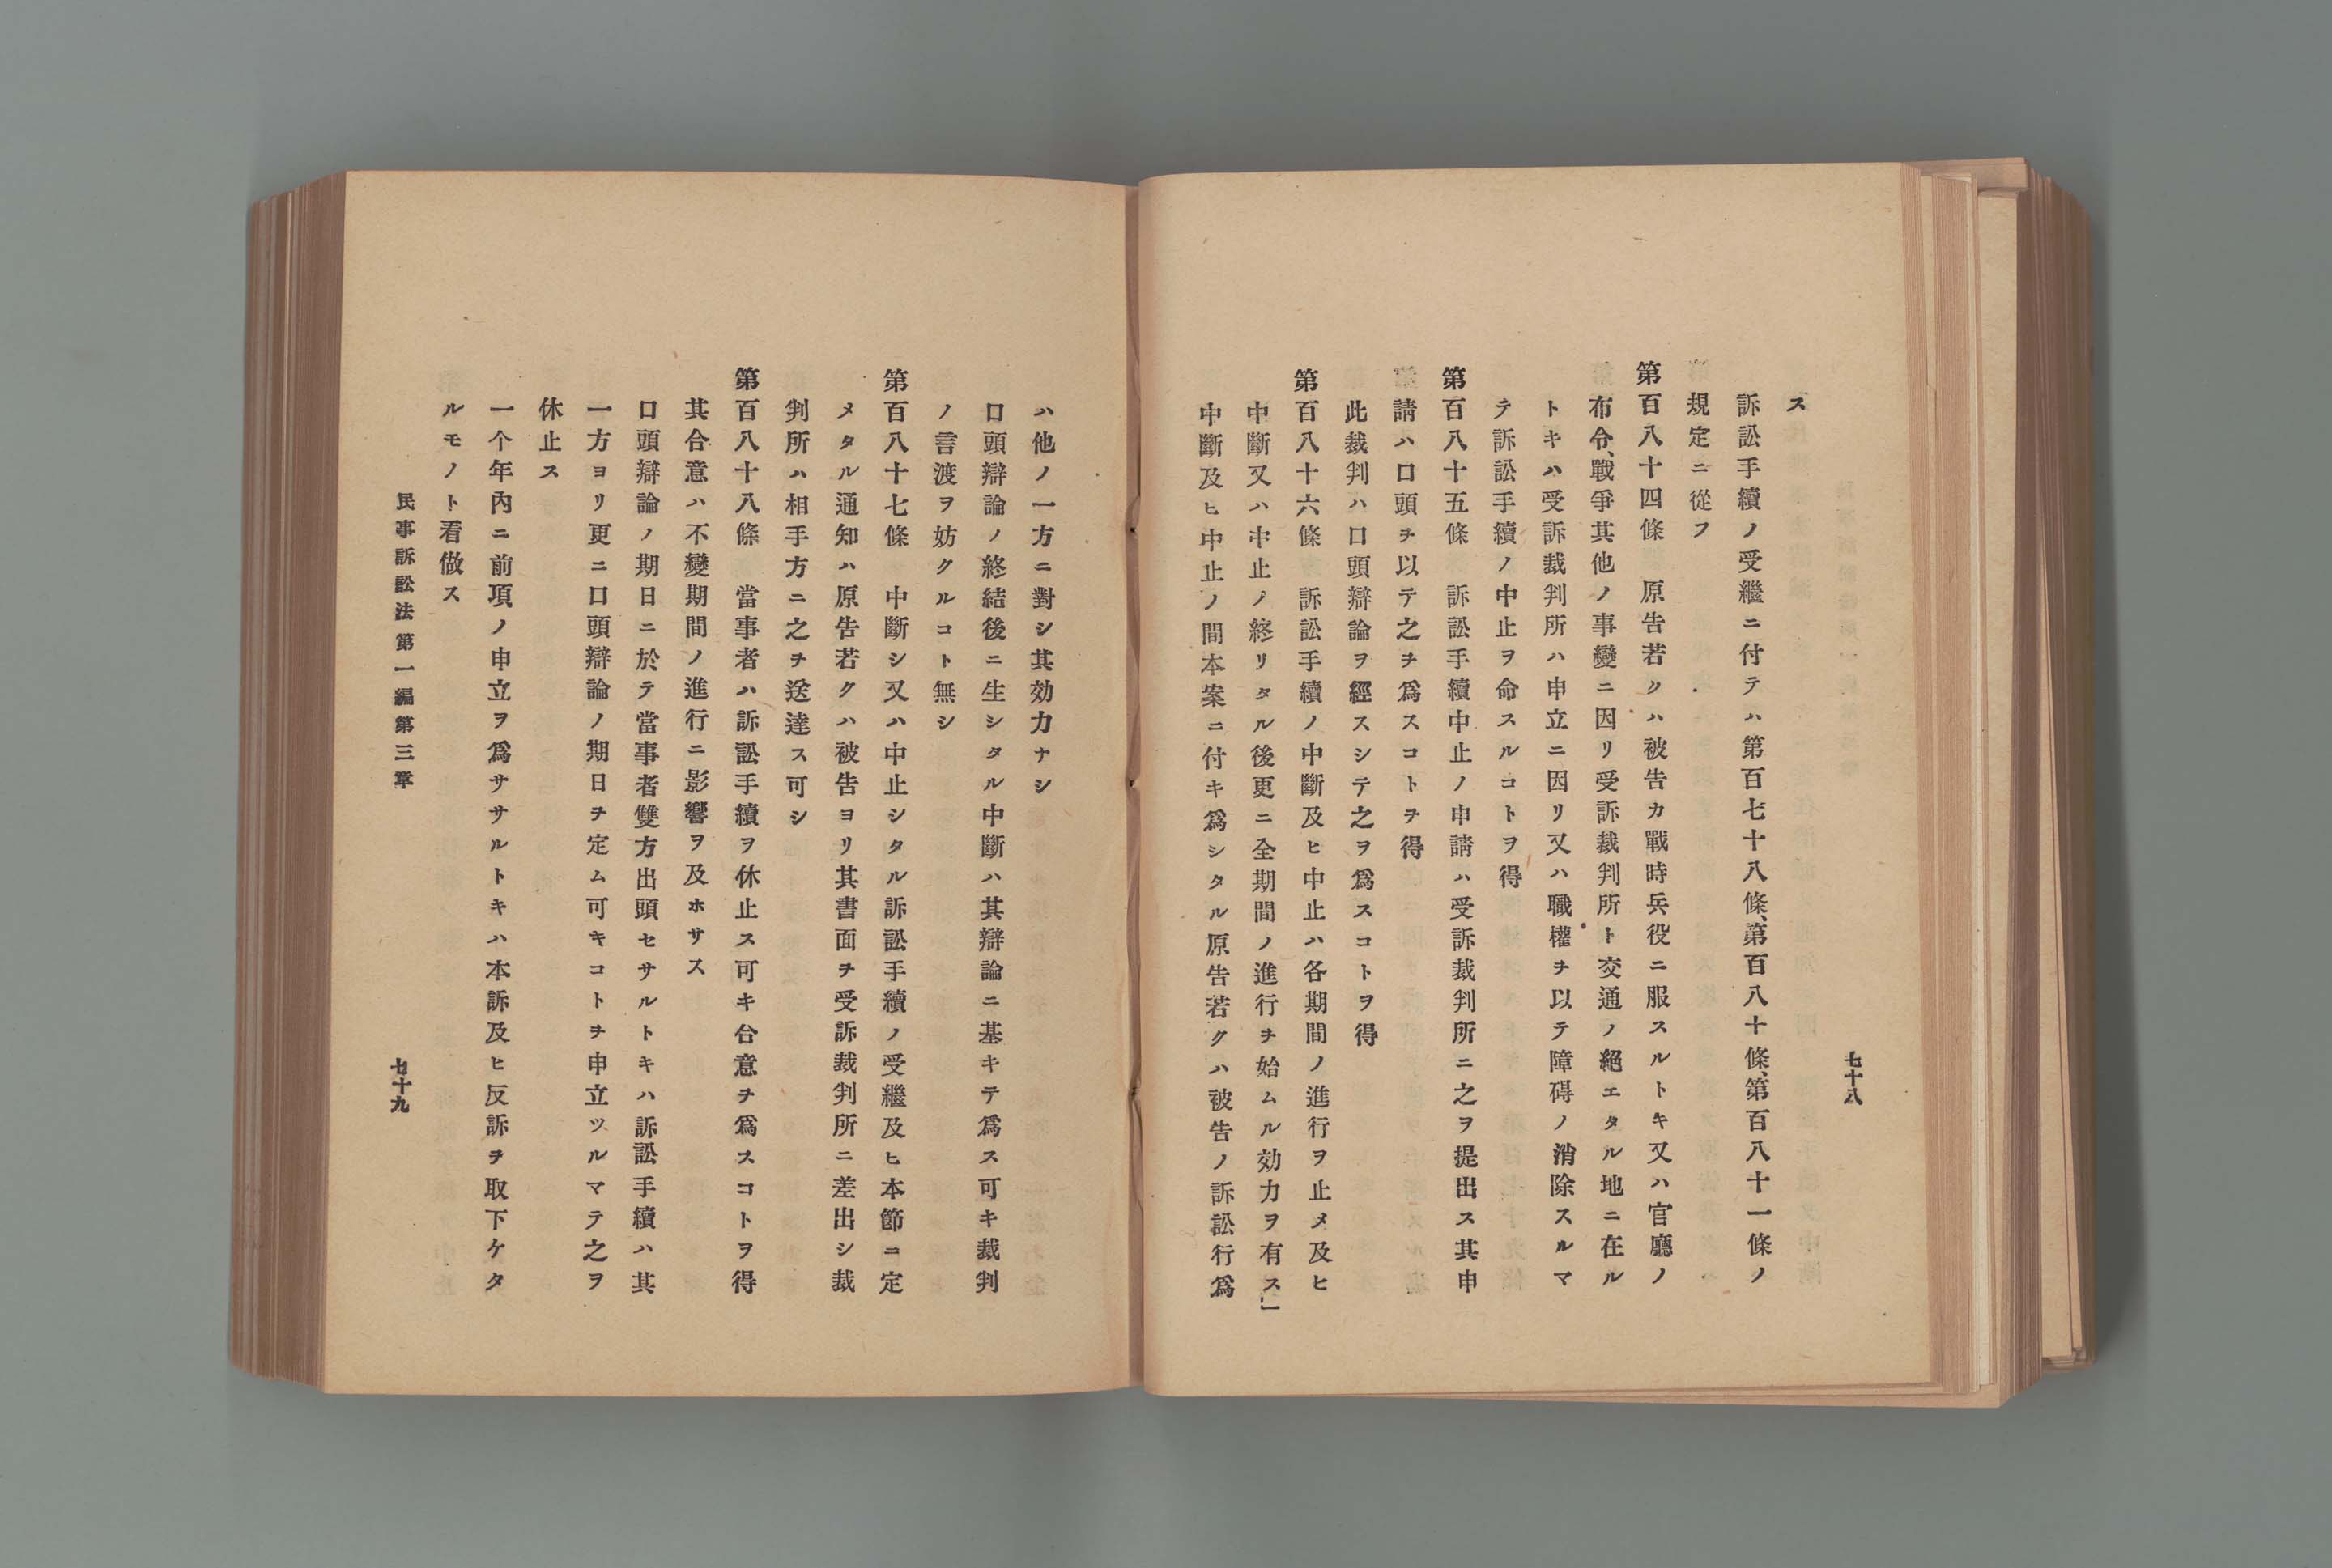 七十八
ス
訴訟手續ノ受繼ニ付テハ第百七十八條、第百八十條、第百八十一條ノ
規定ニ從フ
第百八十四條　原告若クハ被告カ戰時兵役ニ服スルトキ又ハ官廳ノ
布令、戰爭其他ノ事變ニ因リ受訴裁判所ト交通ノ絕エタル地ニ在ル
トキハ受訴裁判所ハ申立ニ因リ又ハ職權ヲ以テ障碍ノ消除スルマ
テ訴訟手續ノ中止ヲ命スルコトヲ得
第百八十五條　訴訟手續中止ノ申請ハ受訴裁判所ニ之ヲ提出ス其申
請ハ口頭ヲ以テ之ヲ爲スコトヲ得
此裁判ハ口頭辯論ヲ經スシテ之ヲ爲スコトヲ得
第百八十六條　訴訟手續ノ中斷及ヒ中止ハ各期間ノ進行ヲ止メ及ヒ
中斷又ハ中止ノ終リタル後更ニ全期間ノ進行ヲ始ムル効力ヲ有ス」
中斷及ヒ中止ノ間本案ニ付キ爲シタル原告若クハ被告ノ訴訟行爲
ハ他ノ一方ニ對シ其効力ナシ
口頭辯論ノ終結後ニ生シタル中斷ハ其辯論ニ基キテ爲ス可キ裁判
ノ言渡ヲ妨クルコト無シ
第百八十七條　中斷シ又ハ中止シタル訴訟手續ノ受繼及ヒ本節ニ定
メタル通知ハ原告若クハ被告ヨリ其書面ヲ受訴裁判所ニ差出シ裁
判所ハ相手方ニ之ヲ送達ス可シ
第百八十八條　當事者ハ訴訟手續ヲ休止ス可キ合意ヲ爲スコトヲ得
其合意ハ不變期間ノ進行ニ影響ヲ及ホサス
口頭辯論ノ期日ニ於テ當事者雙方出頭セサルトキハ訴訟手續ハ其
一方ヨリ更ニ口頭辯論ノ期日ヲ定ム可キコトヲ申立ツルマテ之ヲ
休止ス
一个年內ニ前項ノ申立ヲ爲サヽルトキハ本訴及ヒ反訴ヲ取下ケタ
ルモノト看做ス
民事訴訟法第一編第三章
七十九